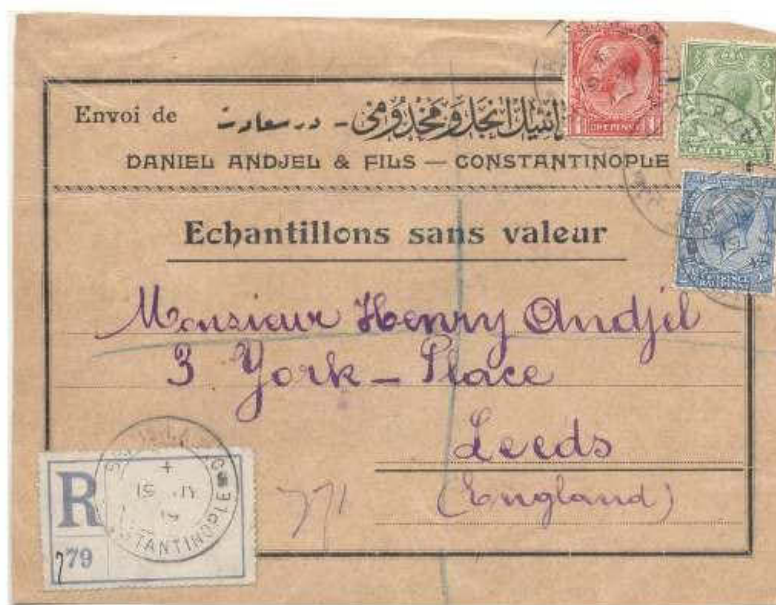 Envoi de دانيل انجل و مخدومى - در سعادت
DANIEL ANDJEL & FILS — CONSTANTINOPLE
Echantillons sans valeur
Monsieur Henry Andjel
3 York-Place
Leeds
(England)
R
79
771
ONE PENNY
HALFPENNY